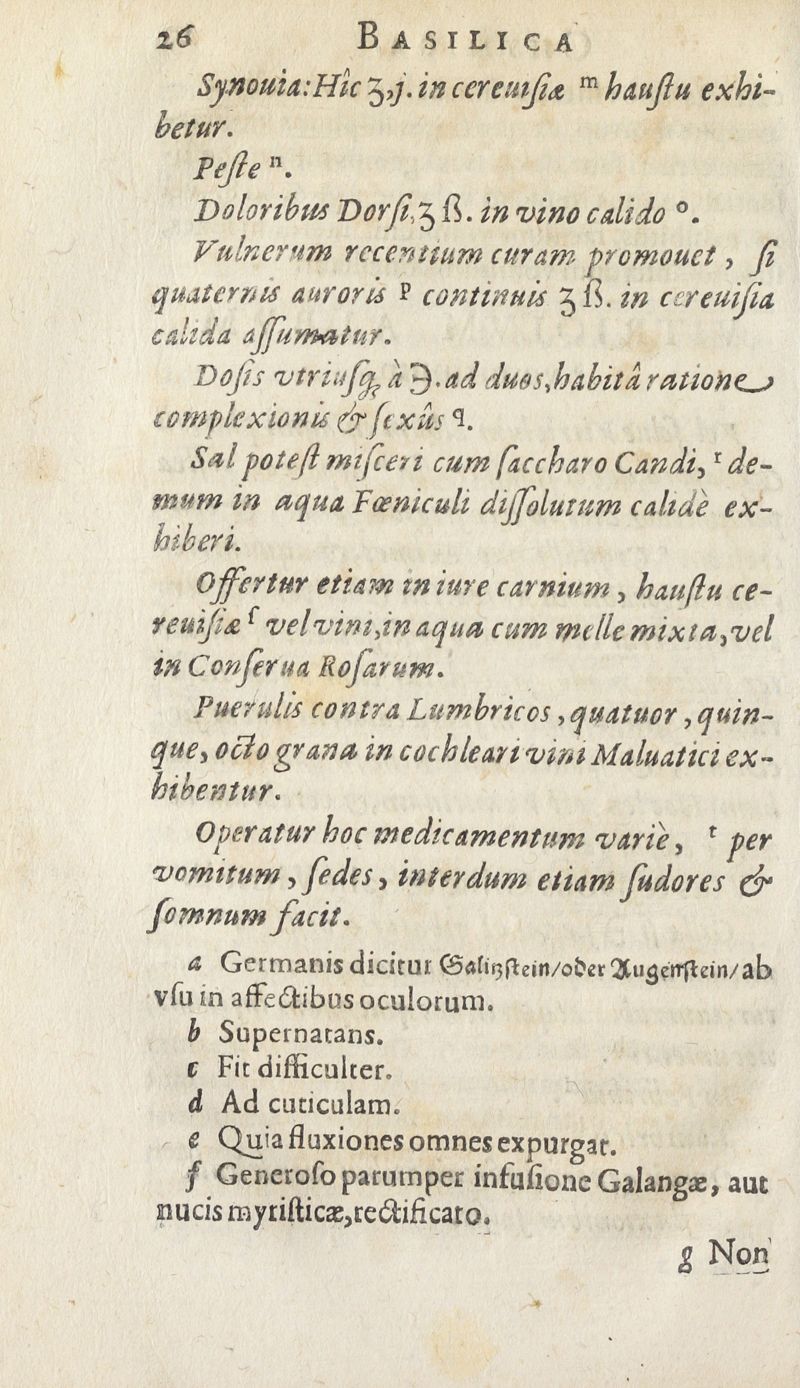 26 BASILICA
Synouia: Hîc ʒ,j. in cereuiſiæ ᵐ hauſtu exhi-
betur.
Peſte ⁿ.
Doloribus Dorſi, ʒ ß. in vino calido ᵒ.
Vulnerum recentium curam promouet, ſi
quaternis auroris ᵖ continuis ʒ ß. in cereuiſia
calida aſſumatur.
Doſis vtriuſq; à ℈. ad duos, habitâ ratione
complexionis & ſexûs q.
Sal poteſt miſceri cum ſaccharo Candi, ʳ de-
mum in aqua Fœniculi diſſolutum calidè ex-
hiberi.
Offertur etiam in iure carnium, hauſtu ce-
reuiſiæ ſ vel vini, in aqua cum melle mixta, vel
in Conſerua Roſarum.
Puerulis contra Lumbricos, quatuor, quin-
que, octo grana in cochleari vini Maluatici ex-
hibentur.
Operatur hoc medicamentum varìe, ᵗ per
vomitum, ſedes, interdum etiam ſudores &
ſomnum facit.
a Germanis dicitur Galitzſtein/oder Augenſtein/ab
vſu in affectibus oculorum.
b Supernatans.
c Fit difficulter.
d Ad cuticulam.
e Quia fluxiones omnes expurgat.
f Generoſo parumper infuſione Galangæ, aut
nucis myriſticæ, rectificato.
g Non